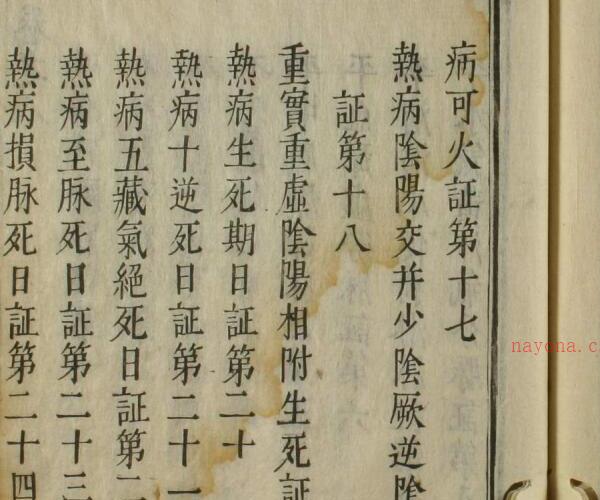 病可火証第十七
熱病陰陽交并少陰厥逆陰
証第十八
重實重虛陰陽相附生死証
熱病生死期日証第二十
熱病十逆死日証第二十一
熱病五藏氣絕死日証第二
熱病至脉死日証第二十三
熱病損脉死日証第二十四
nayona.c